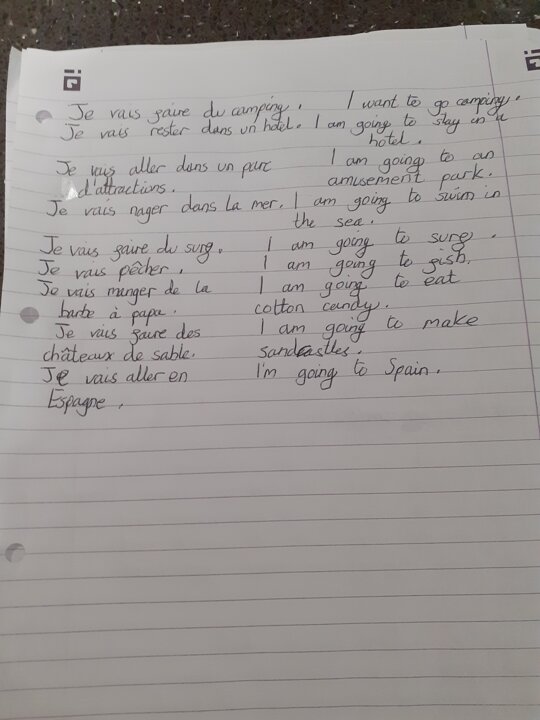 Je vais faire du camping. I want to go camping.
Je vais rester dans un hotel. I am going to stay in a
hotel.
Je vais aller dans un parc I am going to an
d'attractions. amusement park.
Je vais nager dans la mer. I am going to swim in
the sea.
Je vais faire du surf. I am going to surf.
Je vais pêcher. I am going to fish.
Je vais manger de la I am going to eat
barbe à papa. cotton candy.
Je vais faire des I am going to make
châteaux de sable. sandcastles.
Je vais aller en I'm going to Spain.
Espagne.